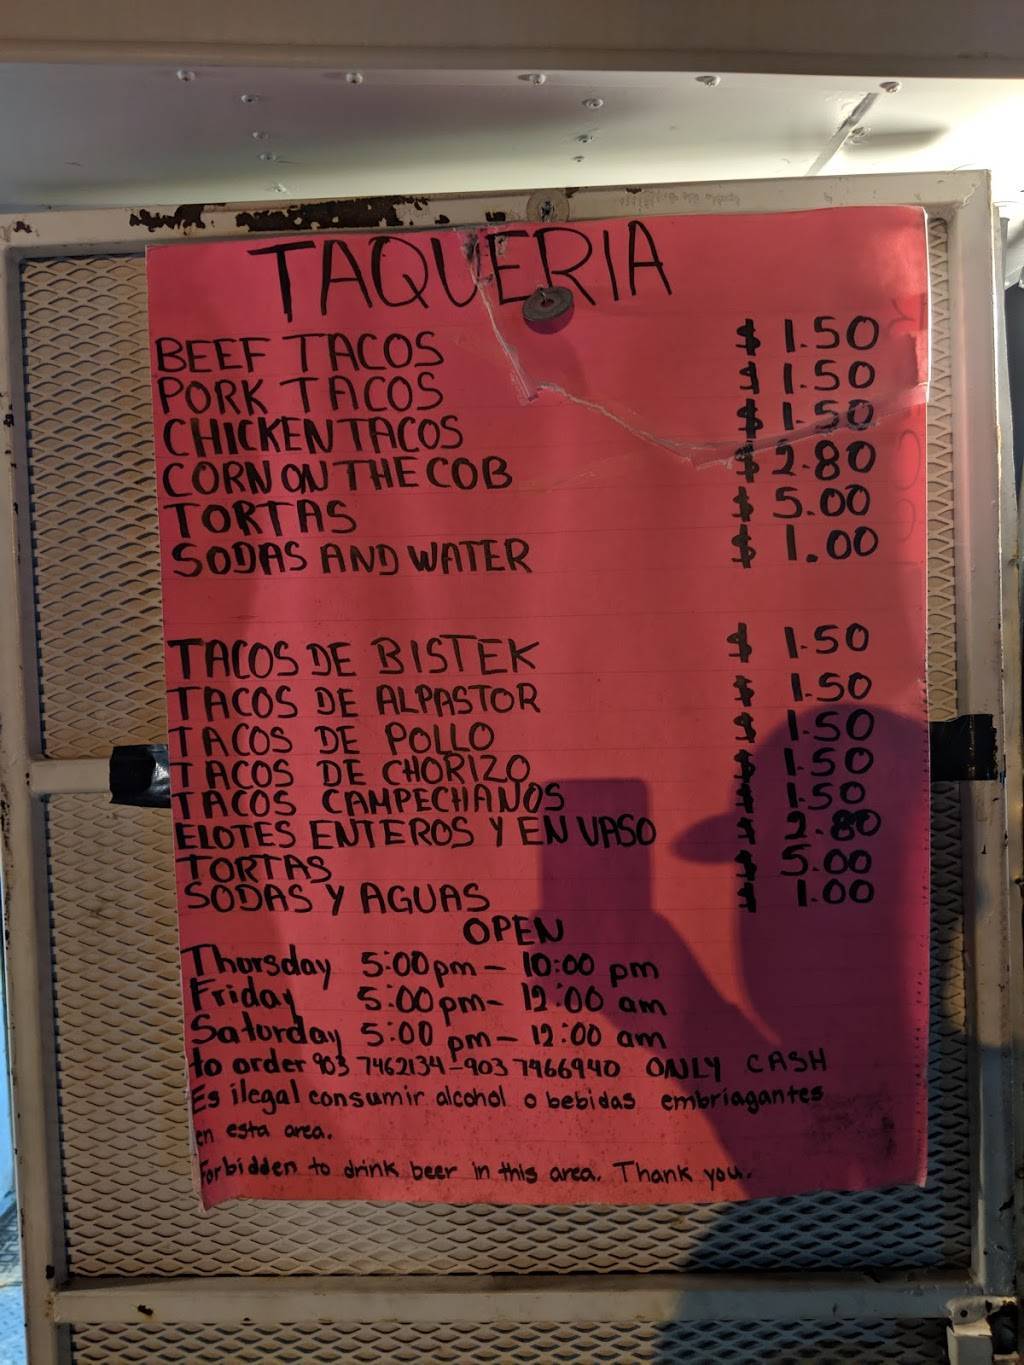 TAQUERIA
BEEF TACOS $ 1.50
PORK TACOS $ 1.50
CHICKEN TACOS $ 1.50
CORN ON THE COB $ 2.80
TORTAS $ 5.00
SODAS AND WATER $ 1.00
TACOS DE BISTEK $ 1.50
TACOS DE ALPASTOR $ 1.50
TACOS DE POLLO $ 1.50
TACOS DE CHORIZO $ 1.50
TACOS CAMPECHANOS $ 1.50
ELOTES ENTEROS Y EN VASO $ 2.80
TORTAS $ 5.00
SODAS Y AGUAS $ 1.00
OPEN
Thursday 5:00pm - 10:00 pm
Friday 5:00pm - 12:00 am
Saturday 5:00 pm - 12:00 am
to order 903 7462134 - 903 7466940 ONLY CASH
Es ilegal consumir alcohol o bebidas embriagantes
en esta area.
Forbidden to drink beer in this area. Thank you.